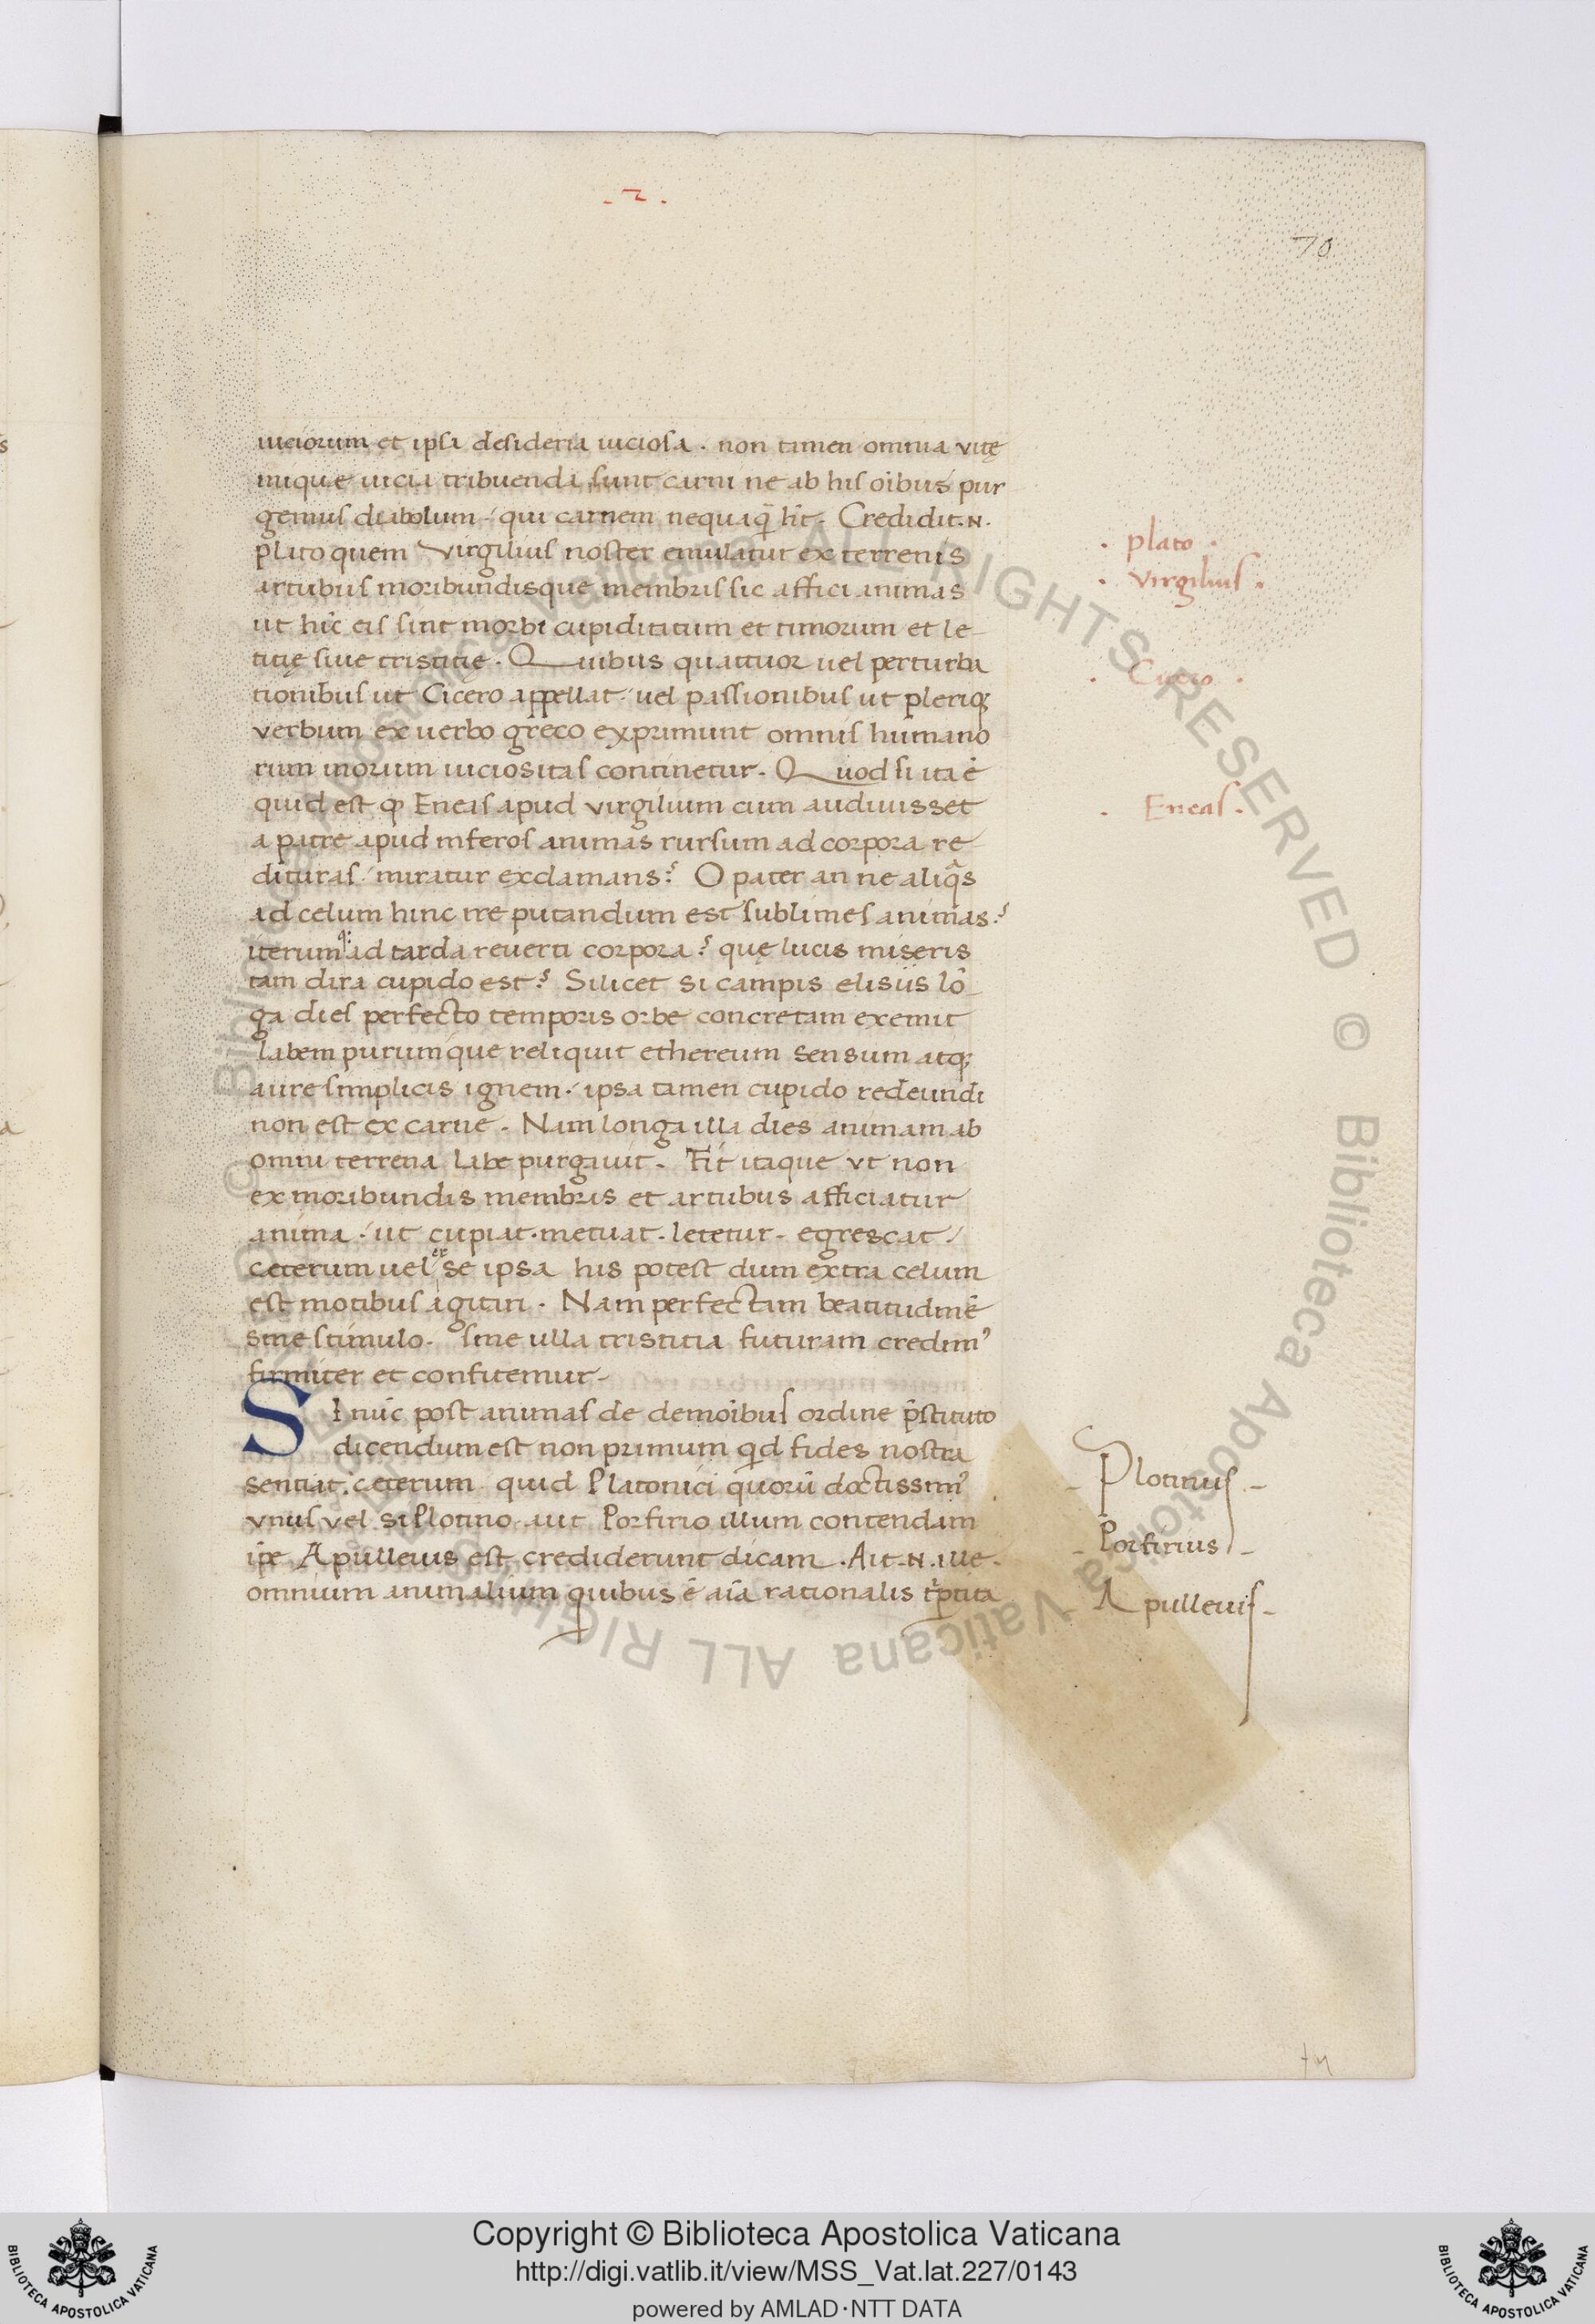 . 2 .
70
uiciorum et ipsa desideria uiciosa . non tamen omnia vitę
inique uicia tribuenda sunt carni ne ab his oībus pur
gemus diabolum / qui carnem nequaq̄ h̄t . Credidit .N.
plato quem Virgilius noster emulatur ex terrenis
artubus moribundisque membris sic affici animas
ut hīc eis sint morbi cupiditatum et timorum et le-
titię siue tristitię . Quibus quattuor uel perturba
tionibus ut Cicero appellat / uel passionibus ut pleriq;
verbum ex uerbo greco exprimunt omnis humano
rum morum uiciositas continetur . Quod si ita ē
quid est ꝙ Eneas apud virgilium cum audiuisset
a patre apud inferos animas rursum ad corpora re
dituras / miratur exclamans ? O pater an ne aliq̄s
ad celum hinc ire putandum est sublimes animas ?
iterumq; ad tarda reuerti corpora ? quę lucis miseris
tam dira cupido est ? Silicet si campis elisiis lō
ga dies perfecto temporis orbe concretam exemit
labem purumque reliquit ethereum sensum atq;
aure simplicis ignem / ipsa tamen cupido redeundi
non est ex carne . Nam longa illa dies animam ab
omni terrena labe purgauit . Fit itaque vt non
ex moribundis membris et artubus afficiatur
anima / ut cupiat . metuat . letetur . egrescat /
ceterum uel ex se ipsa his potest dum extra celum
est motibus agitari . Nam perfectam beatitudinē
sine stimulo . sine ulla tristitia futuram credim⁹
firmiter et confitemur -
SI nūc post animas de demoībus ordine p̄stituto
dicendum est non primum qd fides nostra
sentiat . ceterum quid Platonici quorū doctissim⁹
vnus vel si Plotino aut Porfirio illum contendam
ip̄e Apulleius est crediderunt dicam . Ait .N. ille .
omnium animalium quibus ē aīa rationalis tⁱptita
. plato .
. Virgilius .
. Cicero .
. Eneas .
- Plotinus -
- Porfirius -
Apulleius -
Copyright © Biblioteca Apostolica Vaticana
http://digi.vatlib.it/view/MSS_Vat.lat.227/0143
powered by AMLAD·NTT DATA
BIBLIOTECA APOSTOLICA VATICANA
BIBLIOTECA APOSTOLICA VATICANA
© Biblioteca Apostolica Vaticana ALL RIGHTS RESERVED © Biblioteca Apostolica Vaticana ALL RIGHTS RESERVED